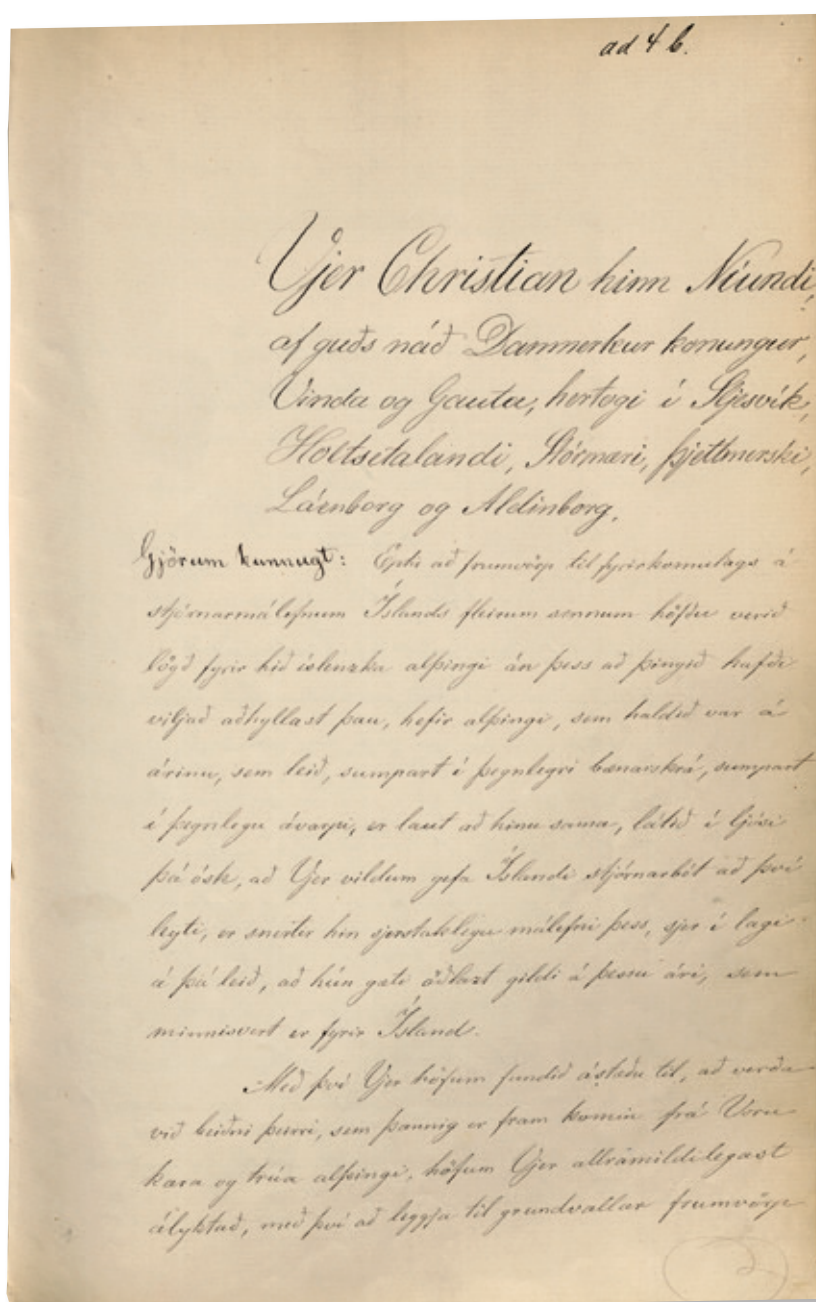 ad 4 b.
Vjer Christian hinn Níundi,
af guðs náð Danmerkur konungur,
Vinda og Gauta, hertogi í Sljesvík,
Holtsetalandi, Stórmæri, Þjettmerski,
Láenborg og Aldinborg,
Gjörum kunnugt: Eptir að frumvörp til fyrirkomulags á
stjórnarmálefnum Íslands fleirum sinnum höfðu verið
lögð fyrir hið íslenzka alþingi án þess að þingið hafði
viljað aðhyllast þau, hefir alþingi, sem haldið var á
árinu, sem leið, sumpart í þegnlegri bænarskrá, sumpart
í þegnlegu ávarpi, er laut að hinu sama, látið í ljósi
þá ósk, að Vjer vildum gefa Íslandi stjórnarbót að því
leyti, er snertir hin sjerstaklegu málefni þess, sjer í lagi
á þá leið, að hún gæti öðlazt gildi á þessu ári, sem
minnisvert er fyrir Ísland.
Með því Vjer höfum fundið ástæðu til, að verða
við beiðni þeirri, sem þannig er fram komin frá Voru
kæra og trúa alþingi, höfum Vjer allramildilegast
ályktað, með því að leggja til grundvallar frumvörp